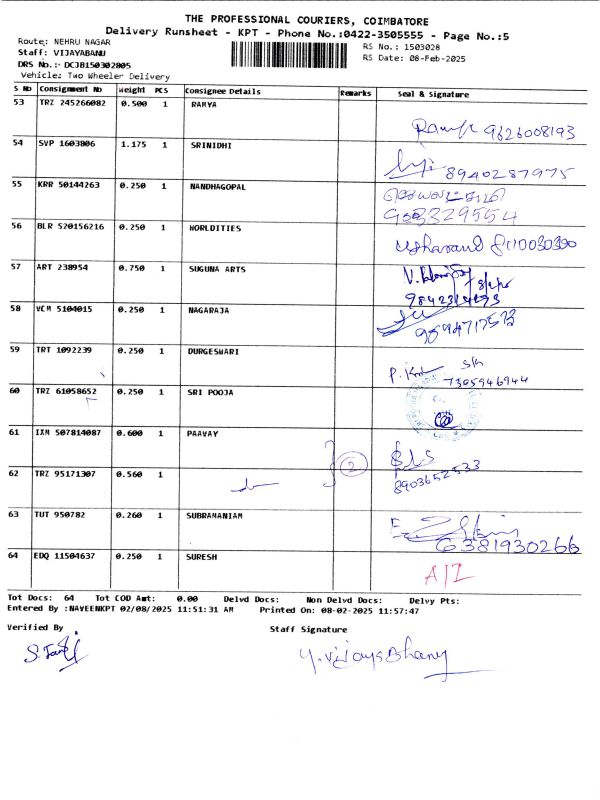 THE PROFESSIONAL COURIERS, COIMBATORE
Delivery Runsheet - KPT - Phone No.:0422-3505555 - Page No.:5
Route: NEHRU NAGAR
RS No.: 1503028
Staff: VIJAYABANU
RS Date: 08-Feb-2025
DRS No.: DCJB150302805
Vehicle: Two Wheeler Delivery
S No Consignment No Weight PCS Consignee Details Remarks Seal & Signature
53 TRZ 245266082 0.500 1 RAMYA
9626008193
54 SVP 1603806 1.175 1 SRINIDHI
8940287975
55 KRR 50144263 0.250 1 NANDHAGOPAL
56 BLR 520156216 0.250 1 WORLDITIES
57 ART 238954 0.750 1 SUGUNA ARTS
58 VCM 5104015 0.250 1 NAGARAJA
59 TRT 1092239 0.250 1 DURGESWARI
7305946944
60 TRZ 61058652 0.250 1 SRI POOJA
61 IXM 507814087 0.600 1 PAAVAY
2
8903652533
62 TRZ 95171307 0.560 1
63 TUT 950782 0.260 1 SUBRAMANIAM
6381930266
64 EDQ 11504637 0.250 1 SURESH
A/Z
Tot Docs: 64 Tot COD Amt: 0.00 Delvd Docs: Non Delvd Docs: Delvy Pts:
Entered By :NAVEENKPT 02/08/2025 11:51:31 AM Printed On: 08-02-2025 11:57:47
Verified By Staff Signature